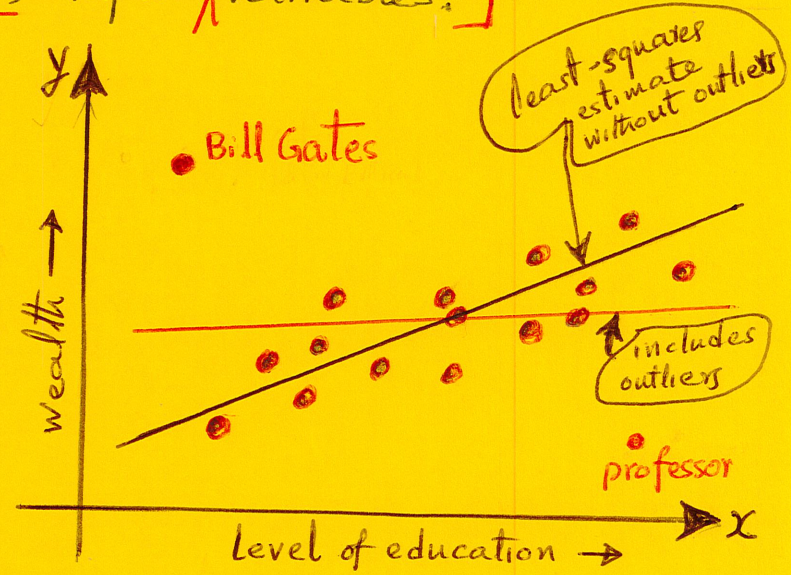 variables.]
y
least-squares
estimate
without outliers
Bill Gates
wealth →
includes
outliers
professor
x
Level of education →